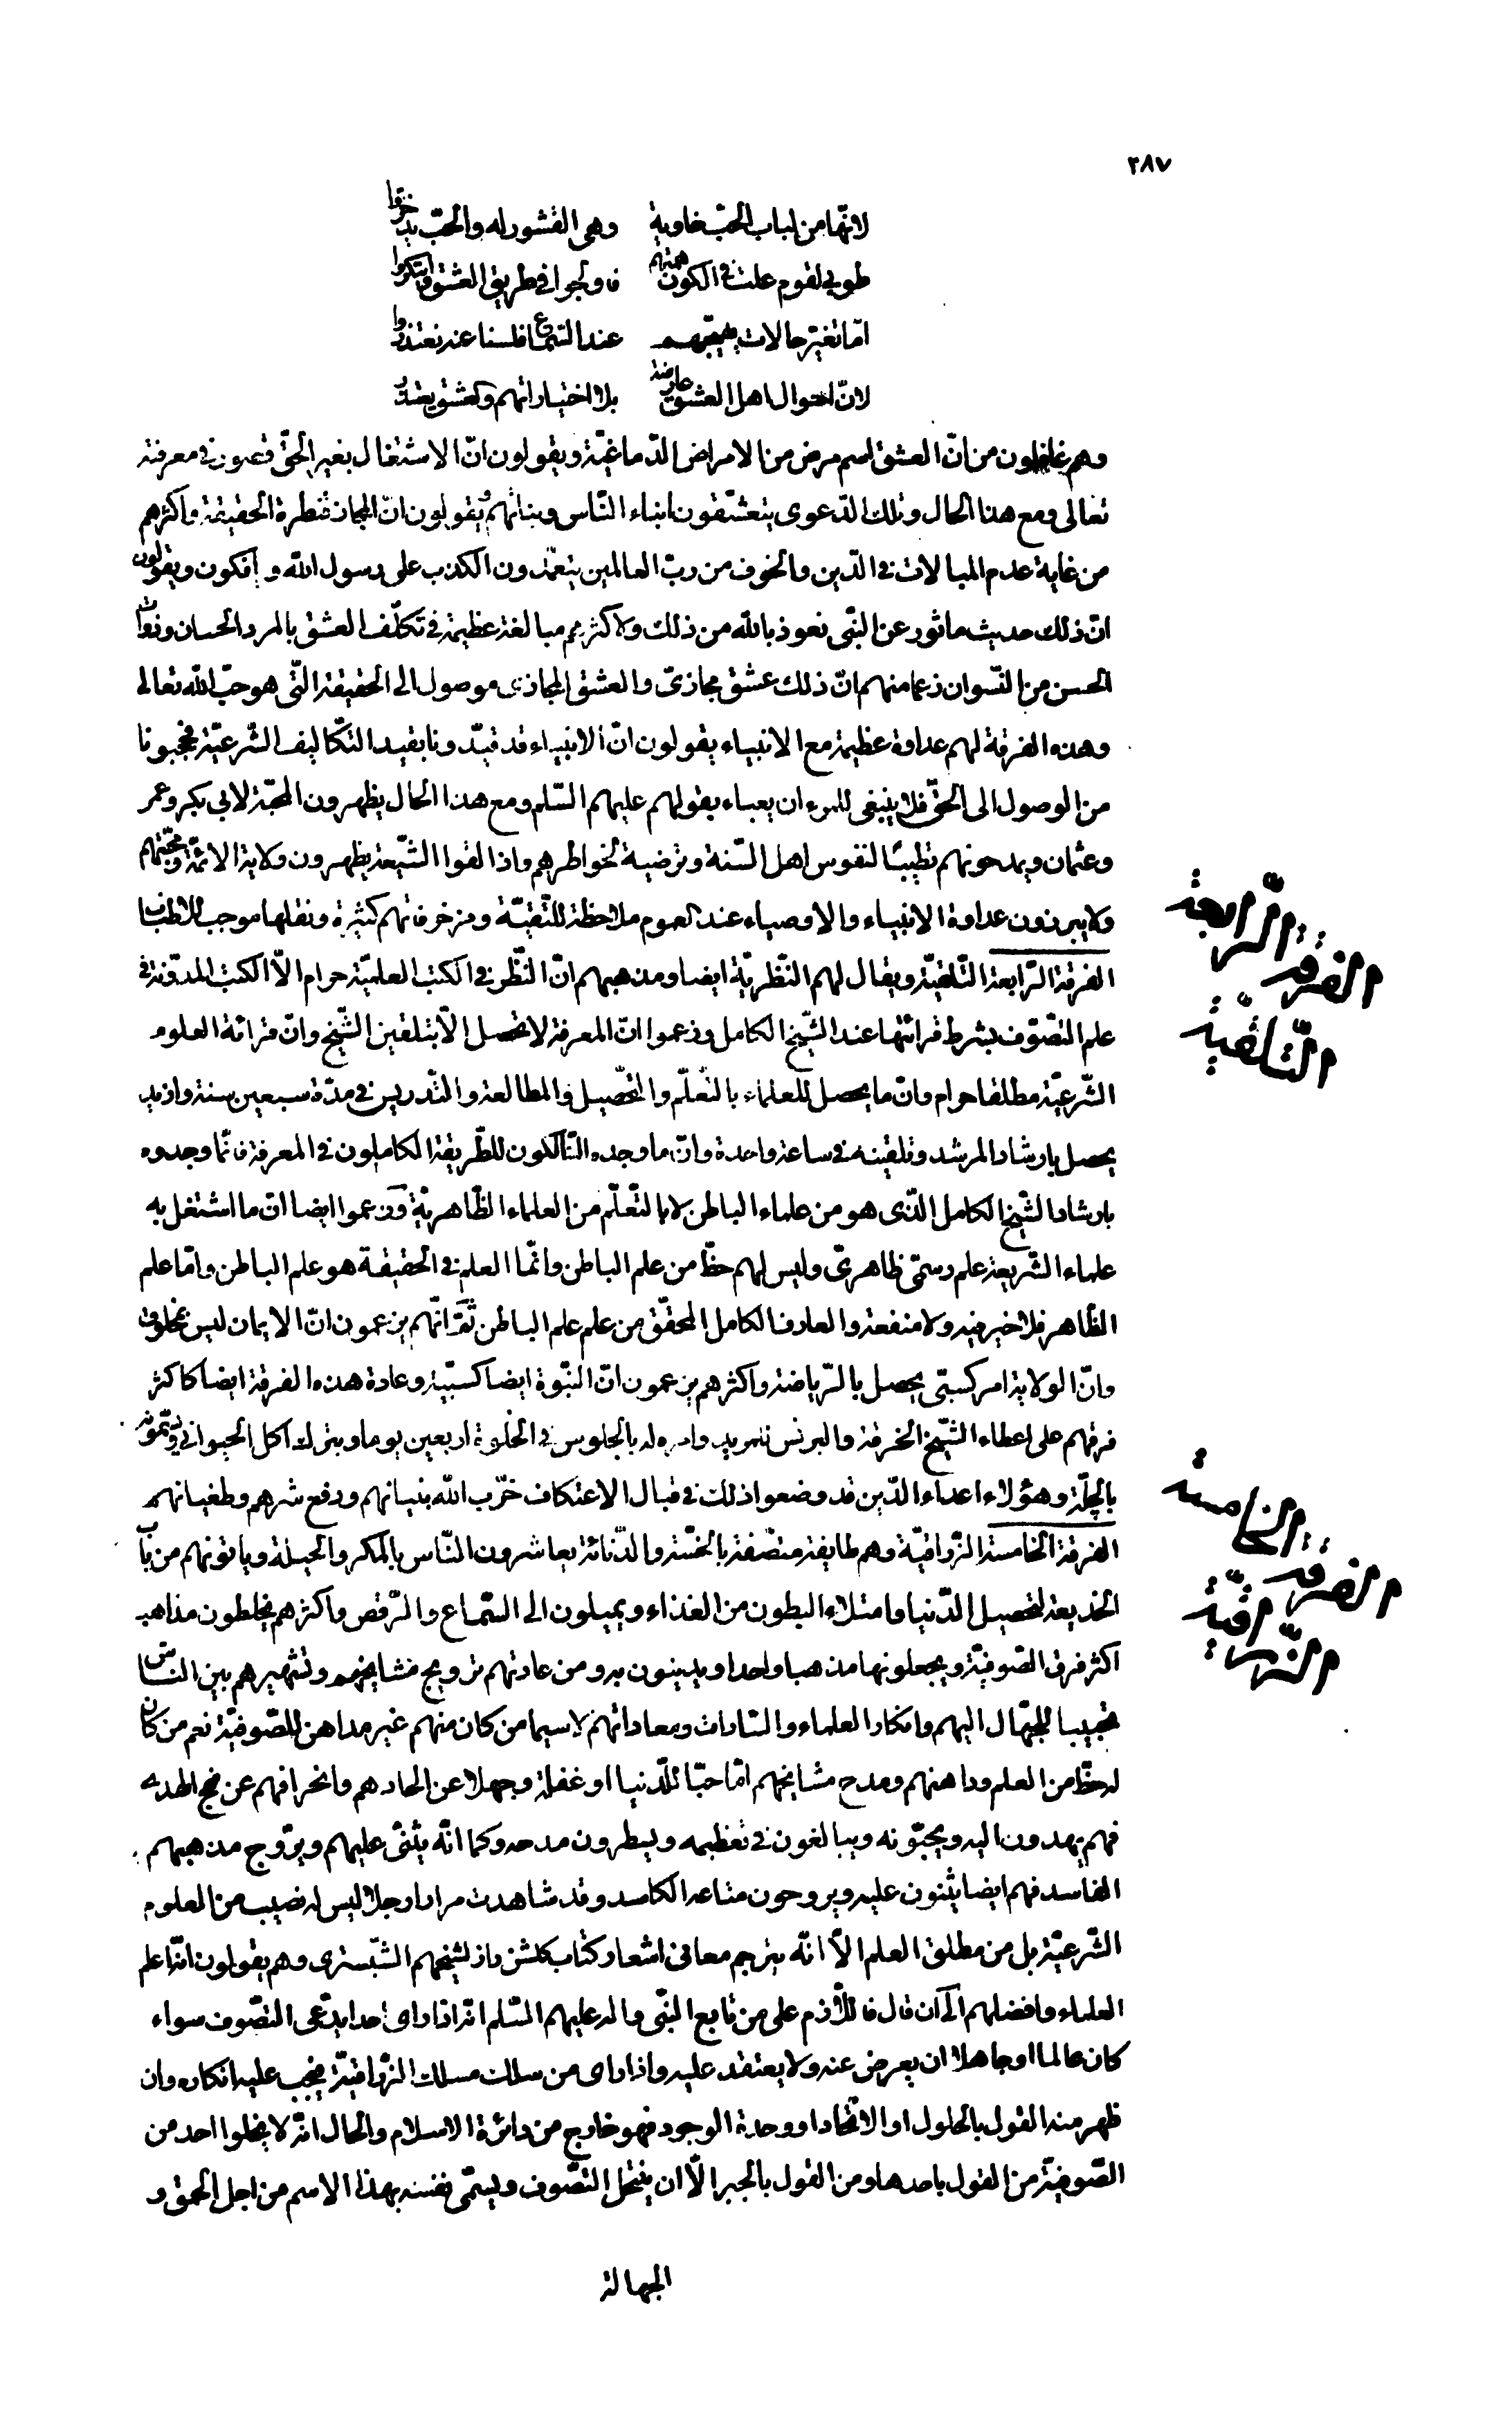 ٢٨٧
لانّها من لباب الحبّ خاوية وهى القشور له والحبّ يدخروا
طوبى لقوم علت فى الكون همتهم فاولجوا فى طريق العشق وابتكروا
امّا تغيّر حالات يهيّجهم عند السّماع فلسنا عنه نعتذروا
لانّ احوال اهل العشق عارضة بلا اختياراتهم وكعشق يعتذر
وهم غافلون من انّ العشق اسم مرض من الامراض الدّماغيّة ويقولون انّ الاشتغال بغير الحقّ فى معرفته
تعالى ومع هذا الحال وتلك الدّعوى يتعشّقون ابناء النّاس وبناتهم ويقولون انّ المجاز قنطرة الحقيقة واكثرهم
من غاية عدم المبالات فى الدّين والخوف من ربّ العالمين يتعمّدون الكذب على رسول الله و يأفكون ويقولون
انّ ذلك حديث ماثور عن النّبى نعوذ بالله من ذلك ولاكثرهم مبالغة عظيمة فى تكلّف العشق بالمرد الحسان وذوات
الحسن من النّسوان زعما منهم انّ ذلك عشق مجازىّ والعشق المجازى موصول الى الحقيقة الّتى هو حبّ الله تعالى
وهذه الفرقة لهم عداوة عظيمة مع الانبياء يقولون انّ الانبياء قد قيّدونا بقيد التكاليف الشّرعيّة فحجبونا
من الوصول الى الحقّ فلا ينبغى للمرء ان يعباء بقولهم عليهم السّلم ومع هذا الحال يظهرون المحبّة لابى بكر وعمر
وعثمان ويمدحونهم تطييبًا لنفوس اهل السّنة وترضية لخواطرهم واذا لقوا الشّيعة يظهرون ولاية الائمّة ومحبّتهم
ولا يبرزون عداوة الانبياء والاوصياء عند العموم ملاحظة للتّقيّة ومزخرفاتهم كثيرة ونقلها موجب للاطناب
الفرقة الرّابعة التّلقيّة ويقال لهم النّظريّة ايضا ومذهبهم انّ النّظر فى الكتب العلميّة حرام الّا الكتب المدوّنة فى
علم التصّوّف بشرط قرائتها عند الشّيخ الكامل وزعموا انّ المعرفة لا تحصل الّا بتلقين الشّيخ وانّ قرائة العلوم
الشّرعيّة مطلقا حرام وانّ ما يحصل للعلماء بالتّعلّم والتّحصيل والمطالعة والتّدريس فى مدّة سبعين سنة وازيد
يحصل بارشاد المرشد وتلقينه فى ساعة واحدة وانّ ما وجده السّالكون للطّريقة الكاملون فى المعرفة فانّما وجدوه
بارشاد الشّيخ الكامل الذّى هو من علماء الباطن لا بالتّعلّم من العلماء الظّاهريّة وزعموا ايضا انّ ما اشتغل به
علماء الشّريعة علم رسمّى ظاهرىّ وليس لهم حظّ من علم الباطن وانّما العلم فى الحقيقة هو علم الباطن وامّا علم
الظّاهر فلا خير فيه ولا منفعة والعارف الكامل المحقّق من علم علم الباطن ثمّ انّهم يزعمون انّ الايمان ليس بمخلوق
وانّ الولاية امر كسبّى يحصل بالرّياضة واكثرهم يزعمون انّ النبّوة ايضا كسبّية وعادة هذه الفرقة ايضا كاكثر
فرقهم على اعطاء الشّيخ الخرقة والبرنس للمريد وامره له بالجلوس فى الخلوة اربعين يوما ويترك اكل الحيوانى ويسمّونه
بالچلّة وهؤلاء اعداء الدّين قد وضعوا ذلك فى قبال الاعتكاف خرّب الله بنيانهم ودفع شرهم وطغيانهم
الفرقة الخامسة الزّراقيّة وهم طايفة متصّفة بالخسّة والدّنائة يعاشرون النّاس بالمكر والحيلة وياتونهم من باب
الخديعة لتحصيل الدّنيا وامتلاء البطون من الغذاء ويميلون الى السّماع والرّقص واكثرهم يخلطون مذاهب
اكثر فرق الصّوفيّة ويجعلونها مذهبا واحدا ويدينون به ومن عادتهم ترويج مشايخهم وتشهيرهم بين النّاس
تحبيبا للجهّال اليهم وانكار العلماء والسّادات ومعاداتهم لا سيما من كان منهم غير مداهن للصّوفيّة نعم من كان
له حظّ من العلم وداهنهم ومدح مشايخهم امّا حبّا للدّنيا او غفلة وجهلا عن الحادهم وانحرافهم عن نهج الهدى
فهم يهدون اليه ويحبّونه ويبالغون فى تعظيمه ويسطرون مدحه وكما انّه يثنى عليهم ويروّج مذهبهم
الفاسد فهم ايضا يثنون عليه ويروجون متاعه الكاسد وقد شاهدت مرارا رجلا ليس له نصيب من العلوم
الشّرعيّة بل من مطلق العلم الّا انّه يترجم معانى اشعار كتاب كلشن راز لشيخهم الشّبسترى وهم يقولون انّه اعلم
العلماء وافضلهم الى ان قال فاللّازم على من تابع النّبى واله عليهم السّلم انّه اذا راى احدا يدّعى التصّوف سواء
كان عالما او جاهلا ان يعرض عنه ولا يعتقد عليه واذا راى من سلك مسلك الزّراقيّة يجب عليه انكاره وان
ظهر منه القول بالحلول او الاتّحاد او وحدة الوجود فهو خارج من دائرة الاسلام والحال انّه لا يخلوا احد من
الصّوفيّة من القول باحدها ومن القول بالجبر الّا ان ينتحل التصّوف ويسمّى نفسه بهذا الاسم من اجل الحمق و
الجهالة
الفرقة الرّابعة
التّلقيّة
الفرقة الخامسة
الزّراقيّة